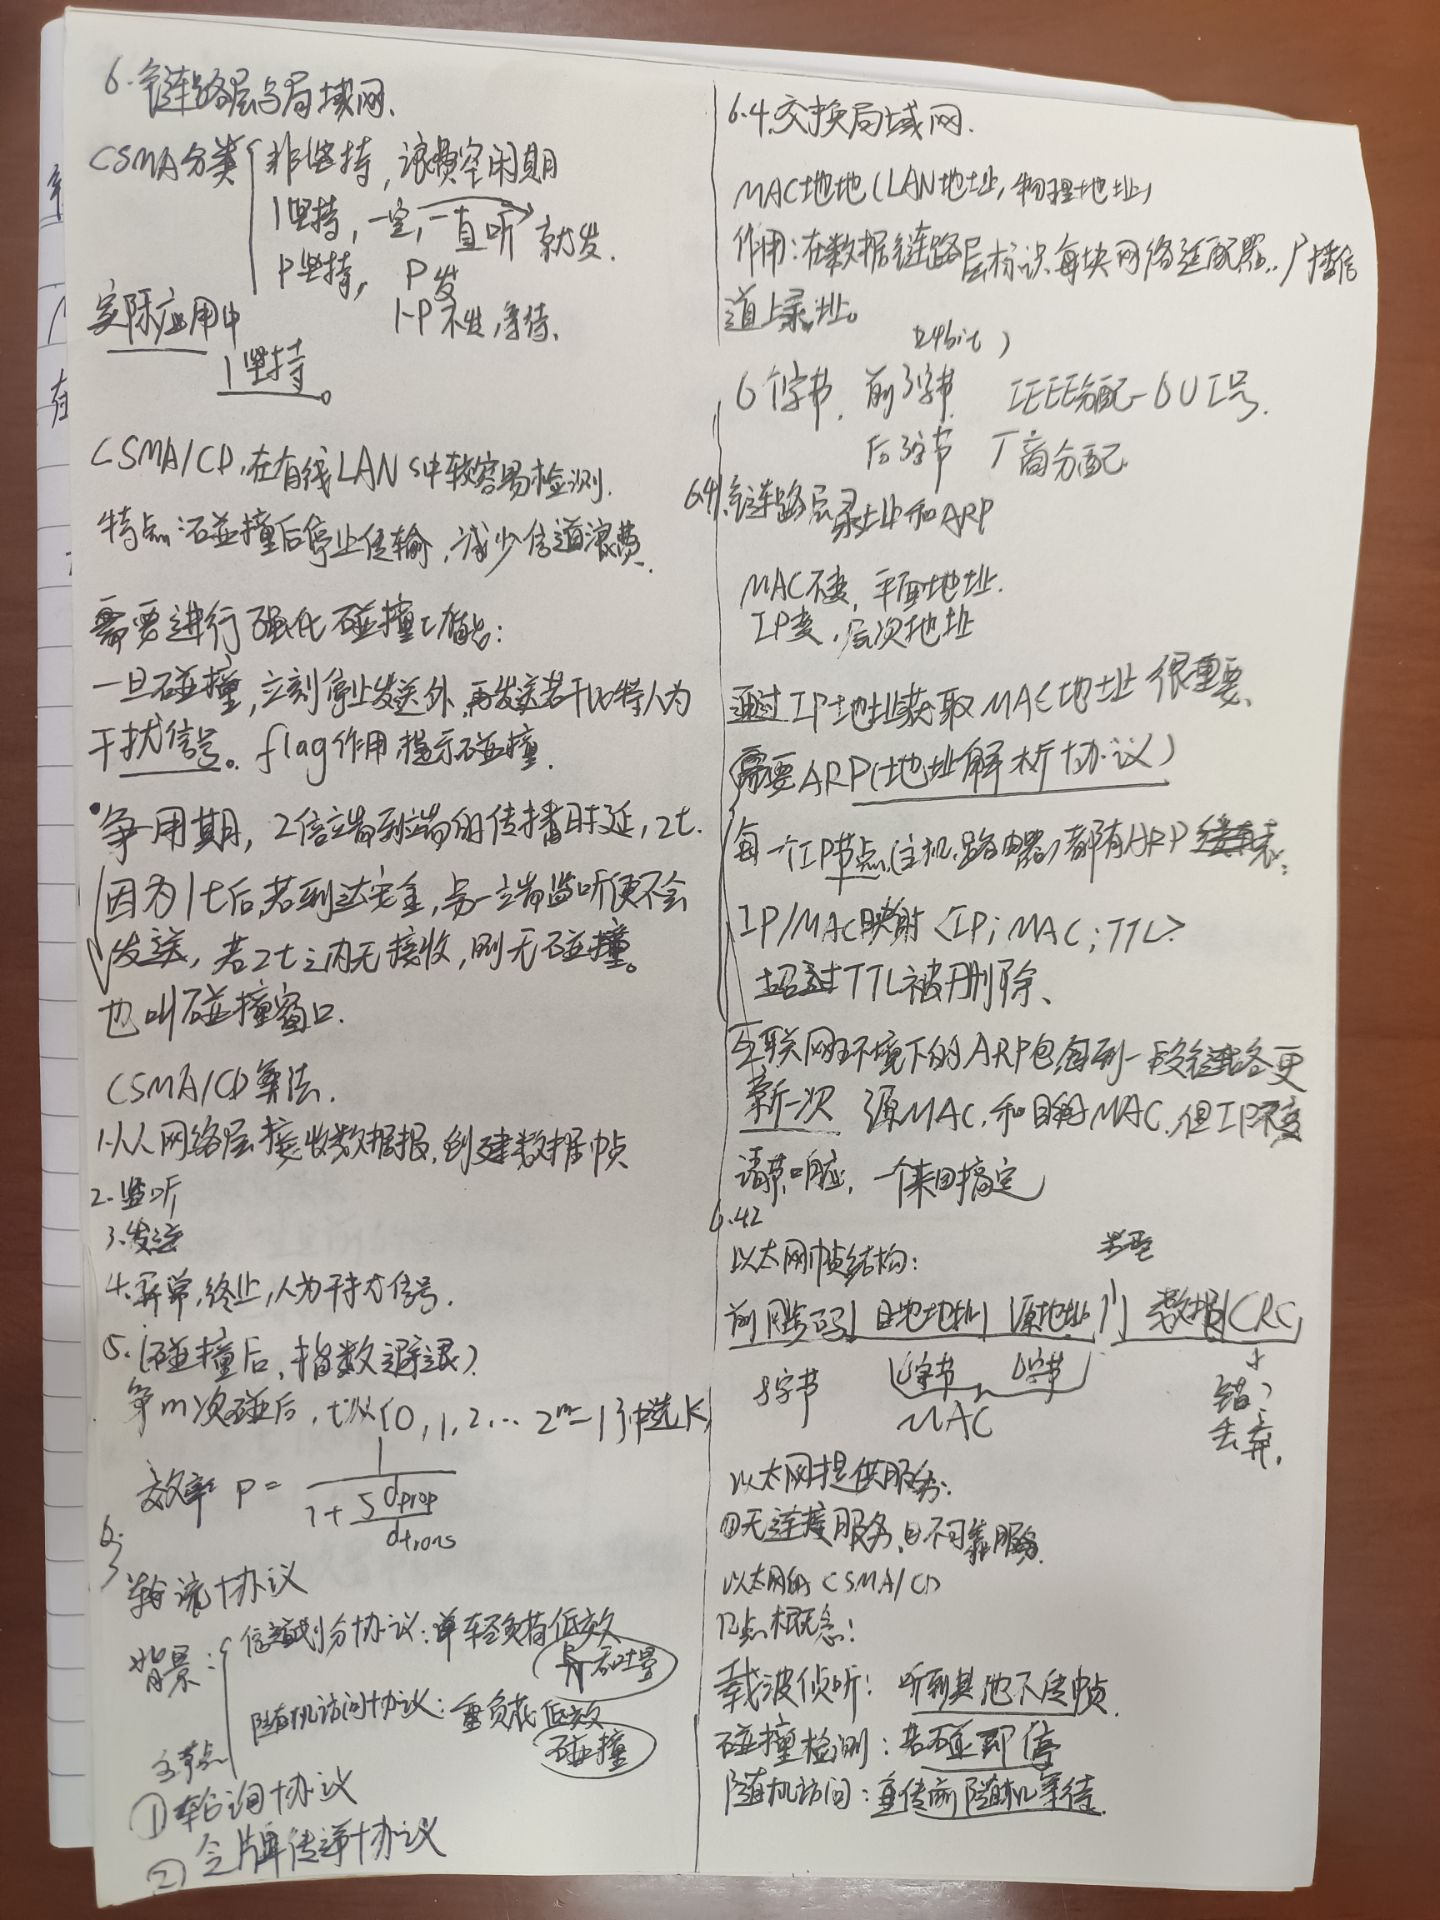 6.链路层与局域网.
CSMA分类
非坚持,浪费空闲期
1坚持,一定,一直听 就发.
P坚持, P发
1-P不发,等待.
实际应用中
1坚持。
CSMA/CD,在有线LANS中较容易检测.
特点:碰撞后停止传输,减少信道浪费.
需要进行强化碰撞功能:
一旦碰撞,立刻停止发送外,再发送若干比特人为
干扰信号。flag作用 指示碰撞.
争用期,2倍端到端的传播时延,2t.
因为1t后,若到达完全,另一端监听便不会
发送,若2t之内无接收,则无碰撞。
也叫碰撞窗口.
CSMA/CD算法.
1.从网络层接收数据报,创建数据帧
2.监听
3.发送
4.异常,终止,人为干扰信号.
5.(碰撞后,指数避退)
第m次碰后,从{0,1,2...2^m-1}中选K,
效率 P= 1/(1+5 dprop/dtrans)
6.3
轮流协议
背景:
信道划分协议:单轻负荷低效
吞吐量
随机访问协议:重负荷低效
碰撞
主节点
①轮询协议
②令牌传递协议
6.4.交换局域网.
MAC地址(LAN地址,物理地址)
作用:在数据链路层标识每块网络适配器.广播信
道上寻址。
(24bit)
6个字节,前3字节 IEEE分配-OUI号.
后3字节 厂商分配
6.41.链路层寻址和ARP
MAC不变,平面地址.
IP变,层次地址
通过IP地址获取MAC地址很重要、
需要ARP(地址解析协议)
每一个IP节点(主机、路由器)都有ARP 表:
IP/MAC映射<IP;MAC;TTL>
超过TTL被删除、
互联网环境下的ARP包,每到一段链路更
新一次 源MAC,和目的MAC,但IP不变
请求响应,一个来回搞定
6.42
以太网帧结构:
类型
前同步码|目地地址|源地址| |数据|CRC
8字节 6字节 6字节
MAC
错?
丢弃.
以太网提供服务:
①无连接服务,②不可靠服务.
以太网的CSMA/CD
几点概念:
载波侦听:听到其他不传帧.
碰撞检测:若碰即停
随机访问:重传前随机等待.